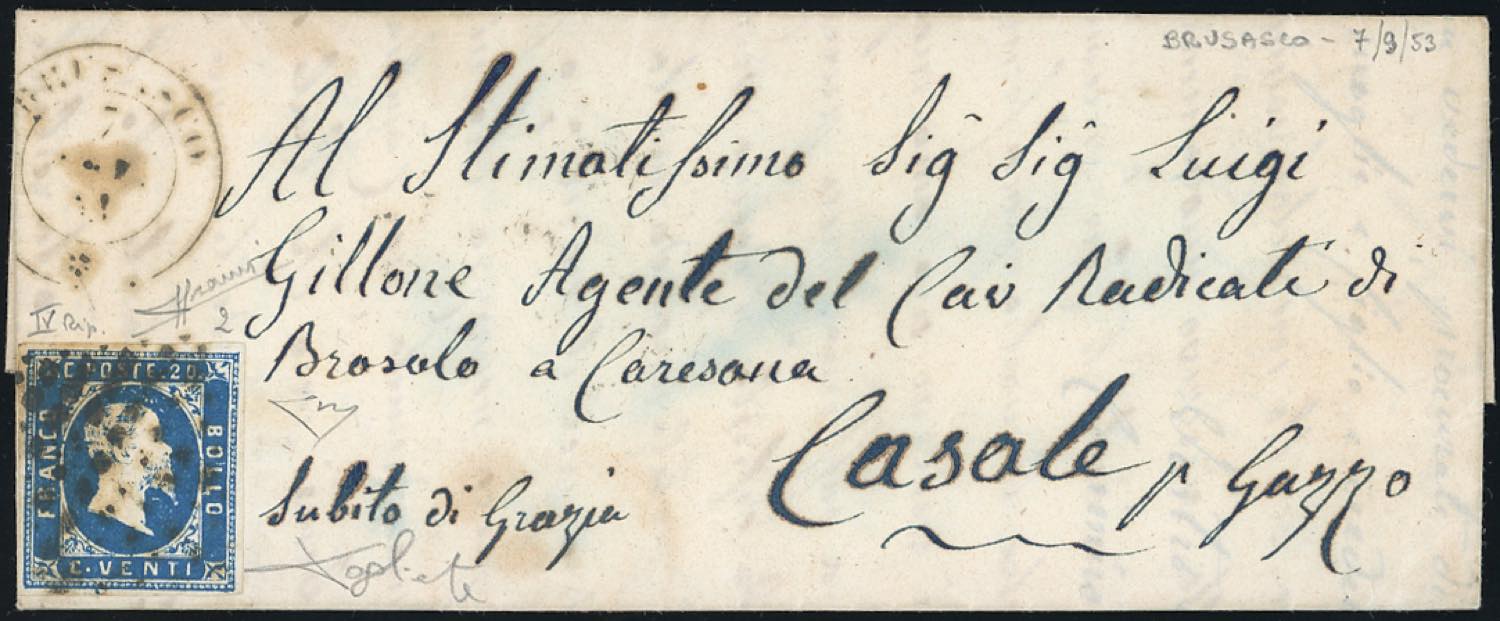 BRUSASCO - 7/9/53
Al Stimatissimo Sig Sig Luigi
Gillone Agente del Cav Radicati di
Brosolo a Caresana
Casale p Gazzo
Subito di Grazia
IV Rip.
2
C. POSTE. 20.
FRANCO
BOLLO
C. VENTI